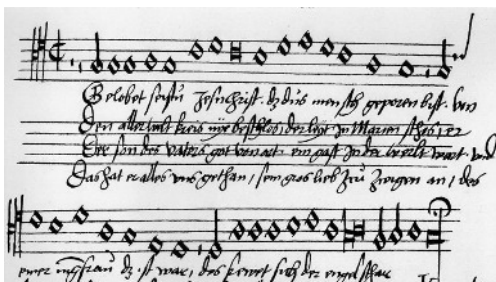 Gelobet seystu Jesu christ. dz du mensch geporen bist. Von
Den aller welt kreis nye beschlos, der ligt in Marien schos, er
Der son des vaters got von art ein gast in der werlt wart. und
Das hat er alles uns gethan, sein gros lieb zcu zceigen an, des
einer jungfrau dz ist war, des frewet sich der engel schar